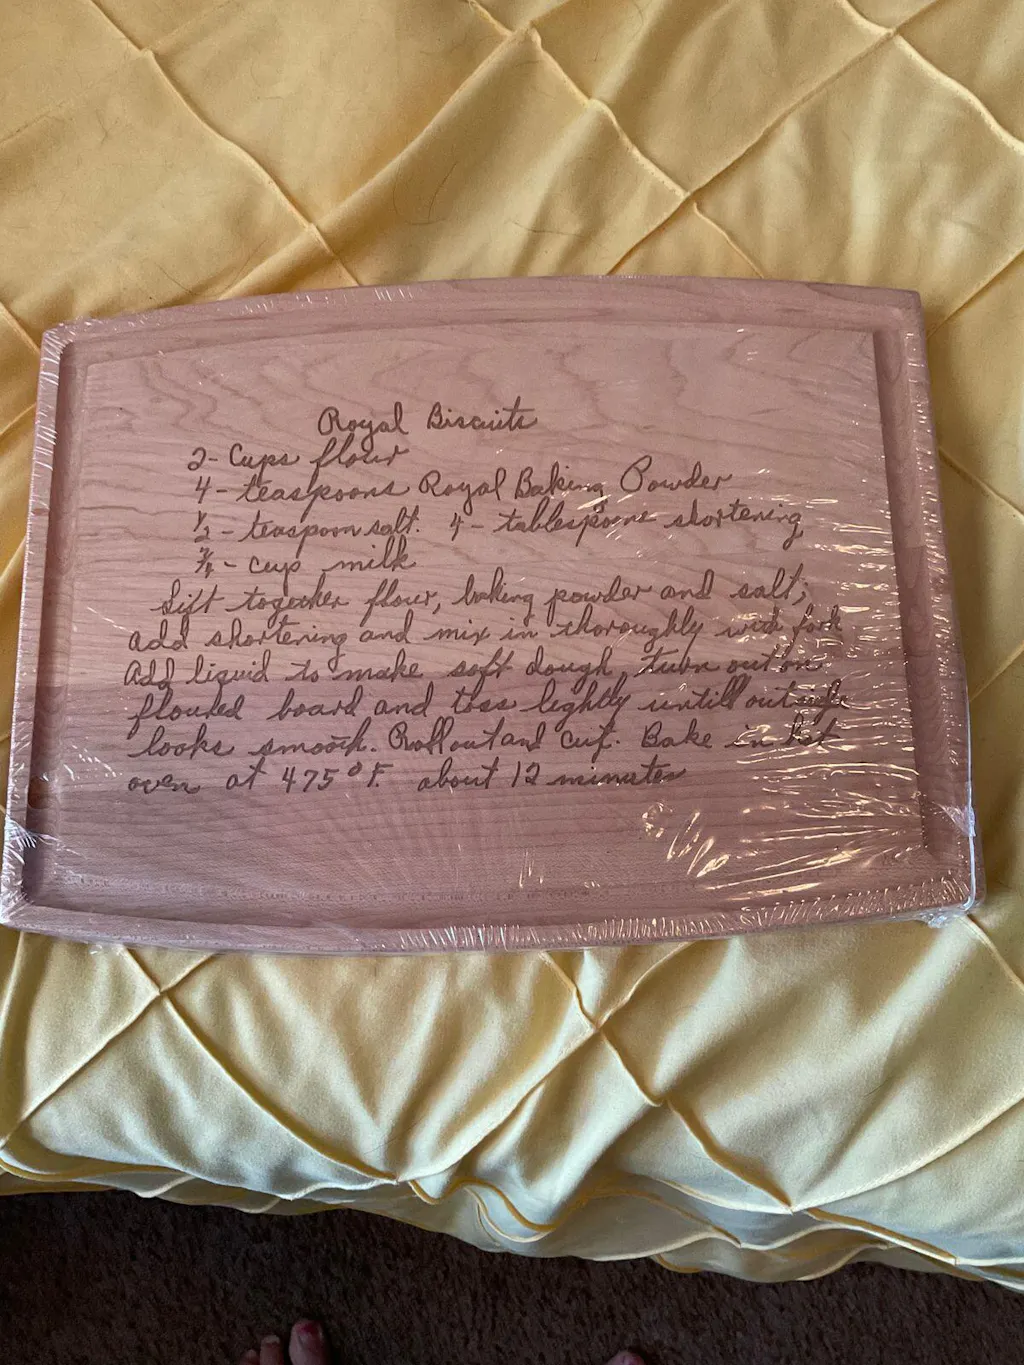 Royal Biscuits
2- Cups flour
4- teaspoons Royal Baking Powder
1/2 - teaspoon salt. 4- tablespoons shortening
3/4 - cup milk
Sift together flour, baking powder and salt;
add shortening and mix in thoroughly with fork
Add liquid to make soft dough turn out on
floured board and toss lightly untill outside
looks smooth. Roll out and cut. Bake in hot
oven at 475°F. about 12 minutes